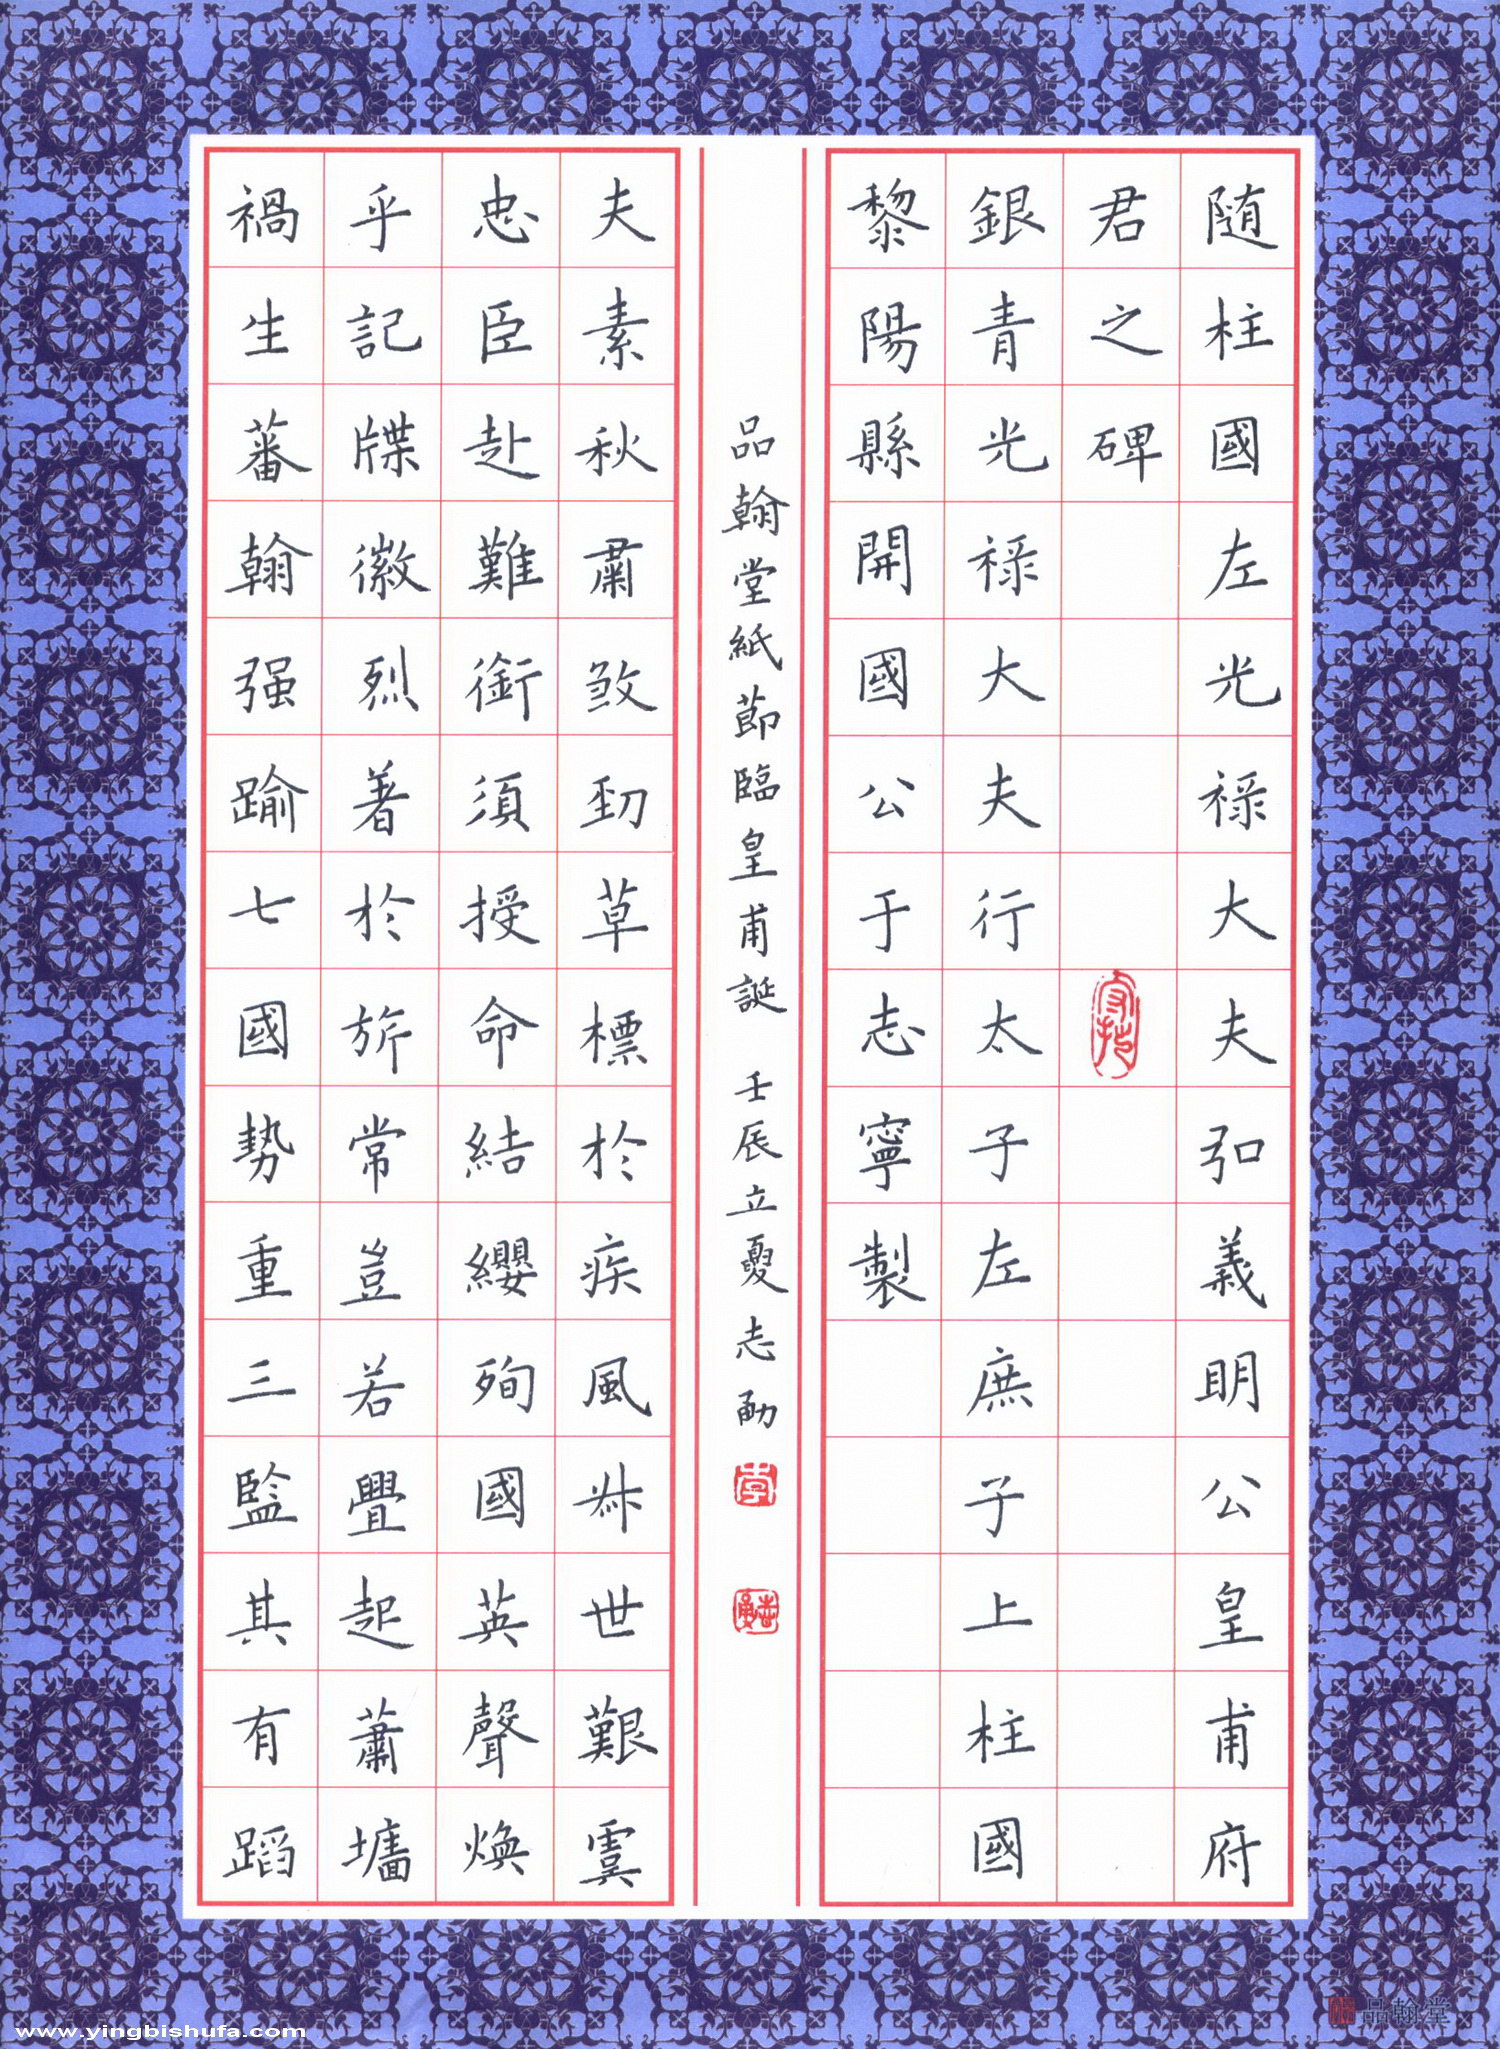 随柱國左光禄大夫弘義明公皇甫府
君之碑
銀青光禄大夫行太子左庶子上柱國
黎陽縣開國公于志寧製
品翰堂紙節臨皇甫誕 壬辰立夏志勇
夫素秋肅煞勁草標於疾風叔世艱虞
忠臣赴難銜須授命結纓殉國英聲煥
乎記牒徽烈著於旂常豈若舋起蕭墻
禍生蕃翰强踰七國勢重三監其有蹈
品翰堂
www.yingbishufa.com